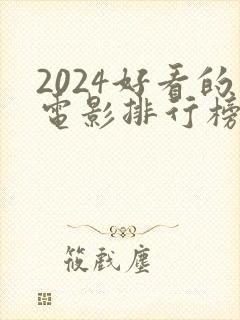 2024好看的
电影排行榜
筱戲塵